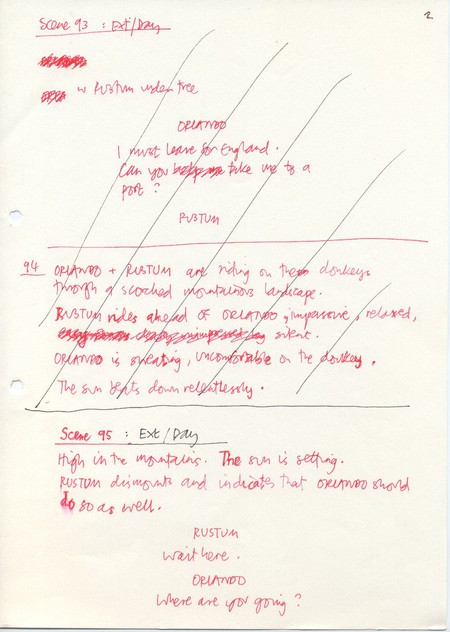 2
Scene 93 : Ext/Day
w RUSTUM under tree
ORLANDO
I must leave for England.
Can you take me to a
port?
RUSTUM
94 ORLANDO + RUSTUM are riding on donkeys
through a scorched mountainous landscape.
RUSTUM rides ahead of ORLANDO, impassive, relaxed,
silent.
ORLANDO is sweating, uncomfortable on the donkey.
The sun beats down relentlessly.
Scene 95 : Ext/Day
High in the mountains. The sun is setting.
RUSTUM dismounts and indicates that ORLANDO should
do so as well.
RUSTUM
Wait here.
ORLANDO
Where are you going?